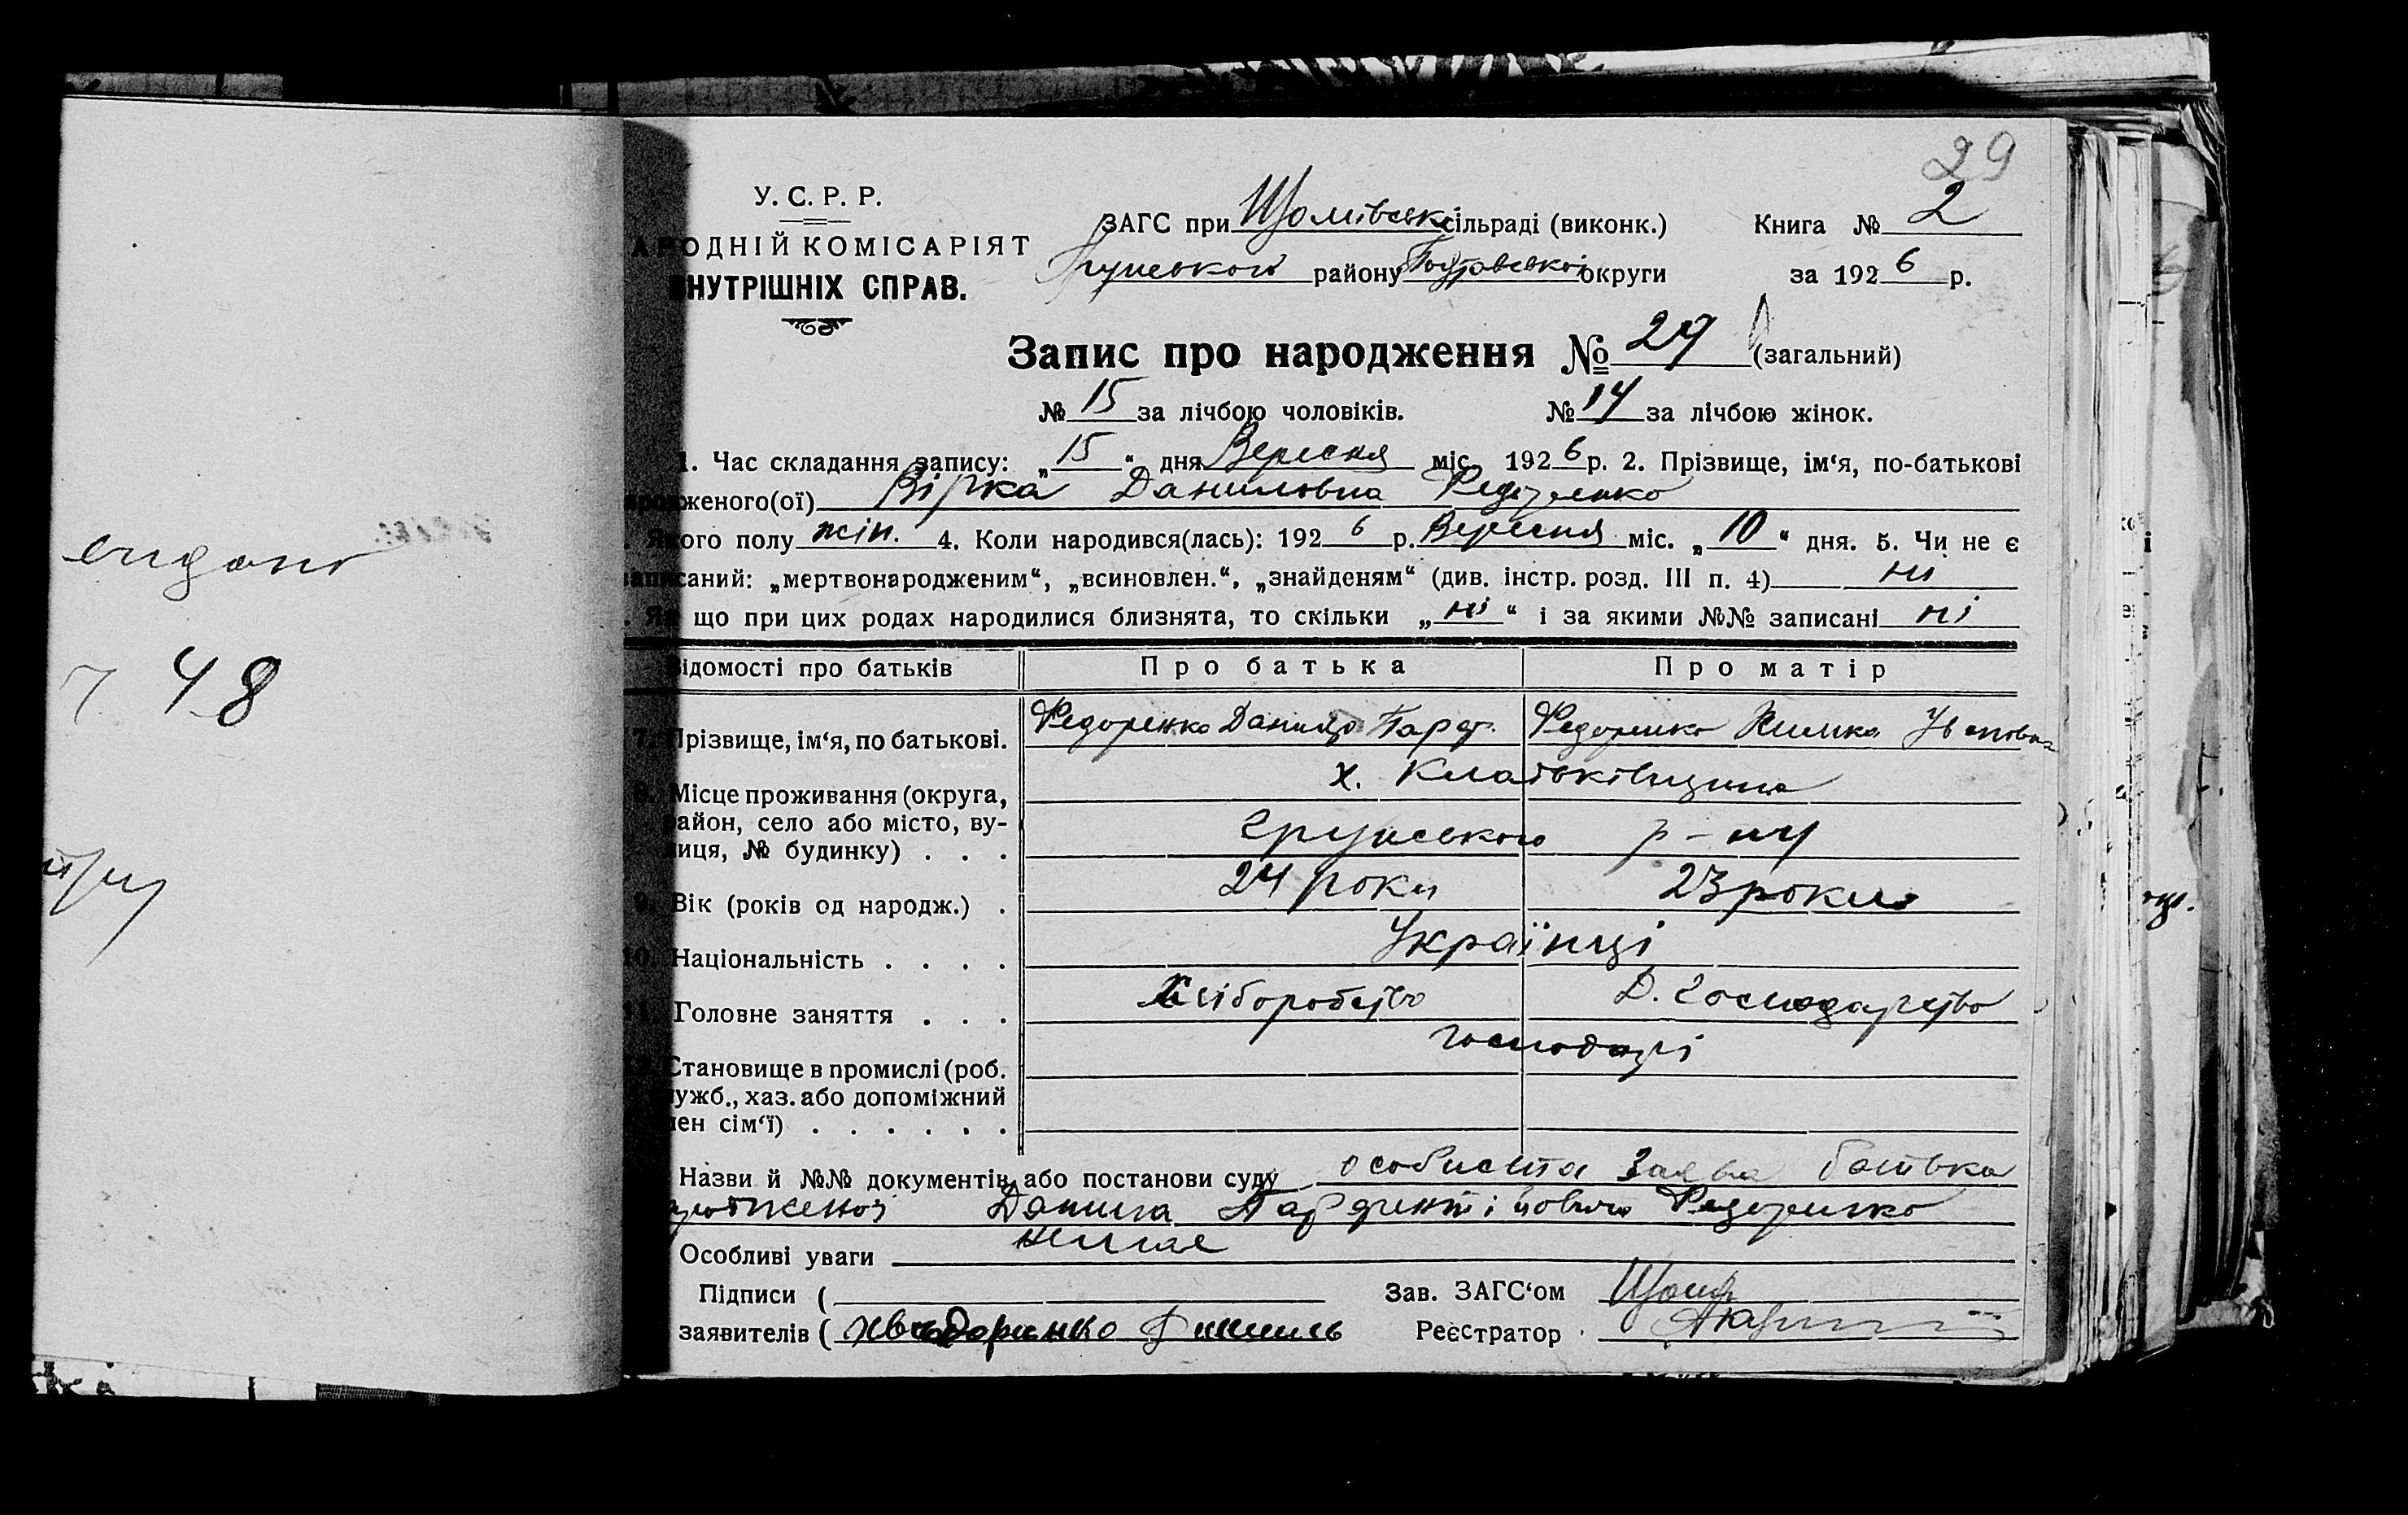 29
У. С. Р. Р.
АРОДНІЙ КОМІСАРІЯТ
ВНУТРІШНІХ СПРАВ.
ЗАГС при Щомівськ сільраді (виконк.)
Книга № 2
Грунського району Полтавської округи
за 1926 р.
Запис про народження № 29 (загальний)
№ 15 за лічбою чоловіків. № 14 за лічбою жінок.
1. Час складання запису: „15“ дня Вересня міс. 1926 р. 2. Прізвище, ім‘я, по-батькові
народженого(ої) Вірка Даниловна Федоренко
Якого полу жін. 4. Коли народився(лась): 1926 р. Вересня міс. „10“ дня. 5. Чи не є
записаний: „мертвонародженим“, „всиновлен.“, „знайденям“ (див. інстр. розд. III п. 4) ні
. Як що при цих родах народилися близнята, то скільки „ні“ і за якими №№ записані ні
Відомості про батьків
Про батька
Про матір
7. Прізвище, ім‘я, по батькові.
Федоренко Данило Парф.
Федоренко Химка Івановна
8. Місце проживання (округа,
район, село або місто, ву-
лиця, № будинку) . . .
х.
грунського р-ну
9. Вік (років од народж.) .
24 роки
23 роки
10. Національність . . . .
Українці
11. Головне заняття . . .
Хліборобство
Д. господарство
Становище в промислі (роб.
служб., хаз. або допоміжний
член сім‘ї) . . . . . .
господарі
Назви й №№ документів або постанови суду особиста заява батька
Данила Парфентійовича Федоренко
Особливі уваги немае
Підписи (
Зав. ЗАГС‘ом
заявителів ( Хведоренко Данило
Реєстратор
48